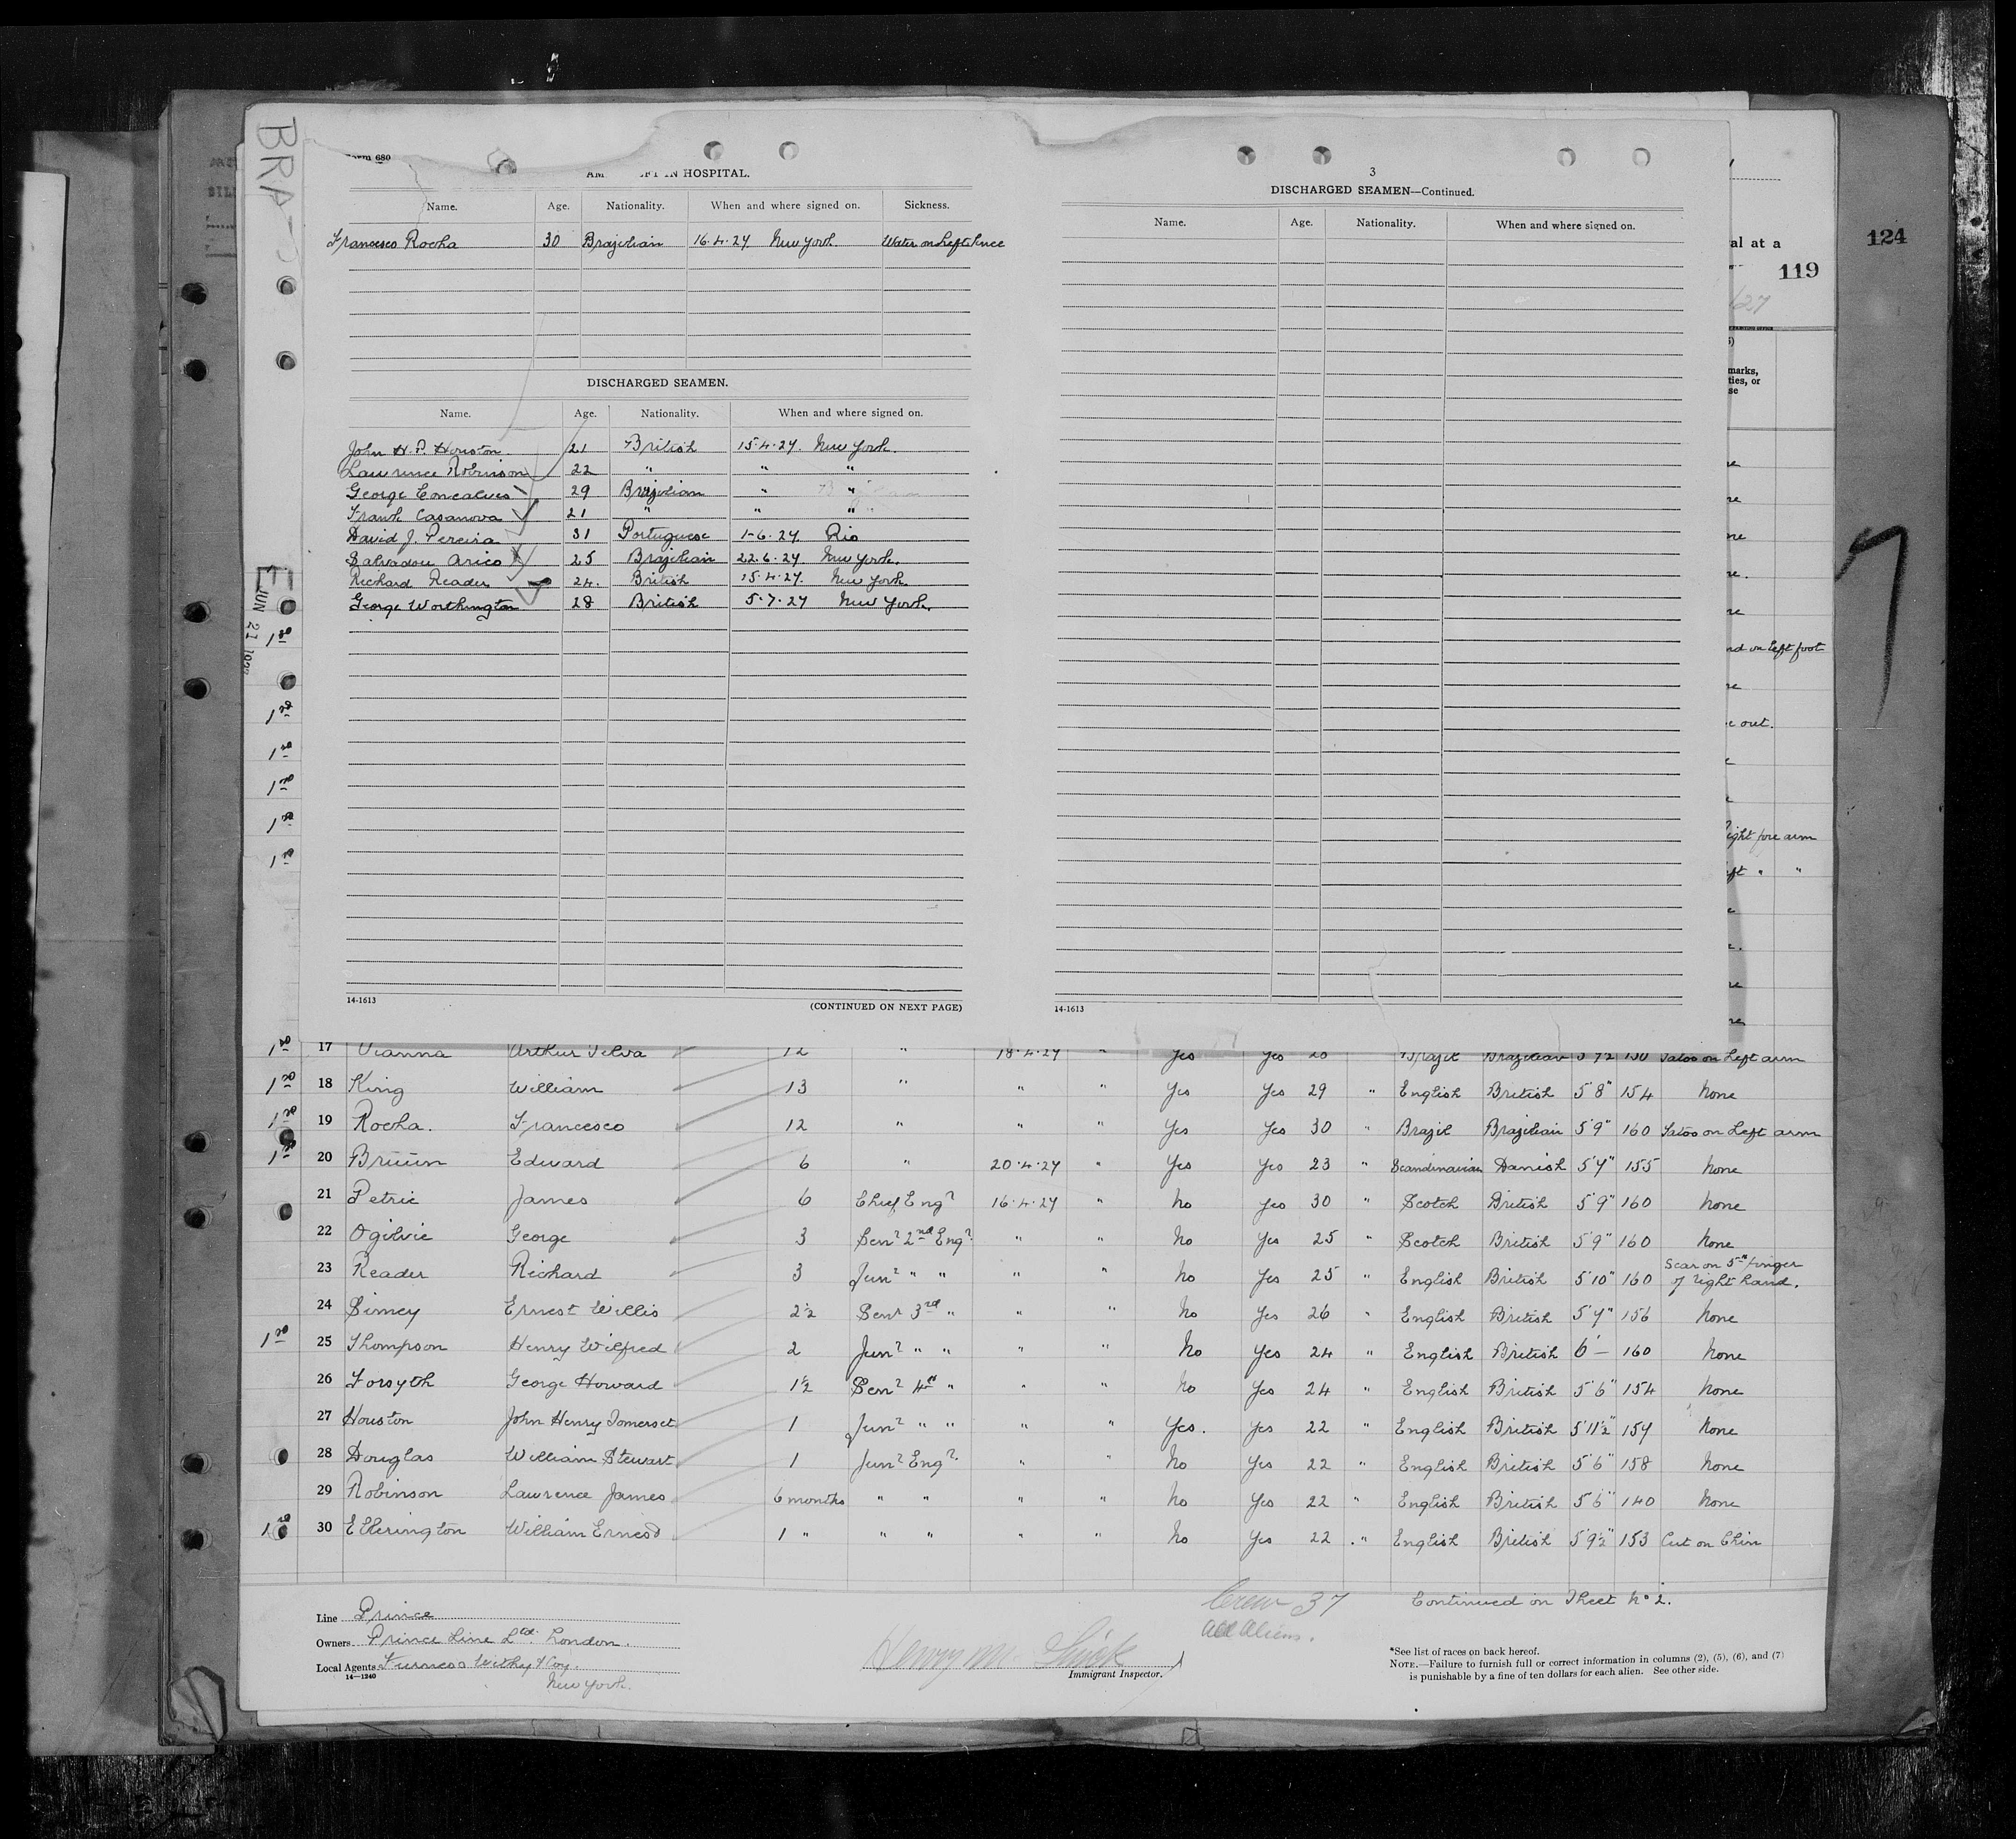 BRA-
Form 680
IN HOSPITAL.
Name. Age. Nationality. When and where signed on. Sickness.
Francesco Rocha 30 Brazilian 16.4.27 New York. Water on Left Knee
DISCHARGED SEAMEN.
Name. Age. Nationality. When and where signed on.
John H. S. Houston. 21 British 15.4.27. New York.
Lawrence Robinson 22 " " "
George Goncalves 29 Brazilian " "
Frank Casanova 21 " " "
David J. Pereira 31 Portuguese 1-6.27. Rio
Salvadou Arico 25 Brazilian 22.6.27. New York.
Richard Reader 24. British 15.4.27. New York.
George Worthington 28 British 5.7.27 New York.
14-1613 (CONTINUED ON NEXT PAGE)
3
DISCHARGED SEAMEN—Continued.
Name. Age. Nationality. When and where signed on.
14-1613
al at a
119
124
27
marks,
ties, or
se
nd on left foot
e out.
right fore arm
ft " "
JUN 21
17 Vianna Arthur Silva 12 " 18.4.27 " Yes Yes 28 Brazil Brazilian 5'7½ 150 Tatoo on Left arm
1st 18 King William 13 " " " Yes Yes 29 " English British 5'8" 154 None
19 Rocha. Francesco 12 " " " Yes Yes 30 " Brazil Brazilian 5'9" 160 Tatoo on Left arm
20 Bruun Edward 6 " 20.4.27 " Yes Yes 23 " Scandinavian Danish 5'7" 155 None
21 Petrie James 6 Chief Engr 16.4.27 " No Yes 30 " Scotch British 5'9" 160 None
22 Ogilvie George 3 Senr 2nd Engr " " No Yes 25 " Scotch British 5'9" 160 None
23 Reader Richard 3 Junr " " " " No Yes 25 " English British 5'10" 160 Scar on 5th finger
of right hand.
24 Simey Ernest Willis 2½ Senr 3rd " " " No Yes 26 " English British 5'7" 156 None
25 Thompson Henry Wilfred 2 Junr " " " " No Yes 24 " English British 6'– 160 None
26 Forsyth George Howard 1½ Senr 4th " " " No Yes 24 " English British 5'6" 154 None
27 Houston John Henry Somerset 1 Junr " " " " Yes. Yes 22 " English British 5'11½" 157 None
28 Douglas William Stewart 1 Junr Engr " " No Yes 22 " English British 5'6" 158 None
29 Robinson Lawrence James 6 months " " " " No Yes 22 " English British 5'6" 140 None
30 Etherington William Ernest 1 " " " " " No Yes 22 " English British 5'9½" 153 Cut on Chin
Crew 37 Continued on Sheet No 2.
all Aliens.
Line Prince
Owners Prince Line Ltd. London.
Local Agents Furness Withy & Coy.
14—1240
New York.
Henry M.
Immigrant Inspector.
*See list of races on back hereof.
NOTE.—Failure to furnish full or correct information in columns (2), (5), (6), and (7)
is punishable by a fine of ten dollars for each alien. See other side.